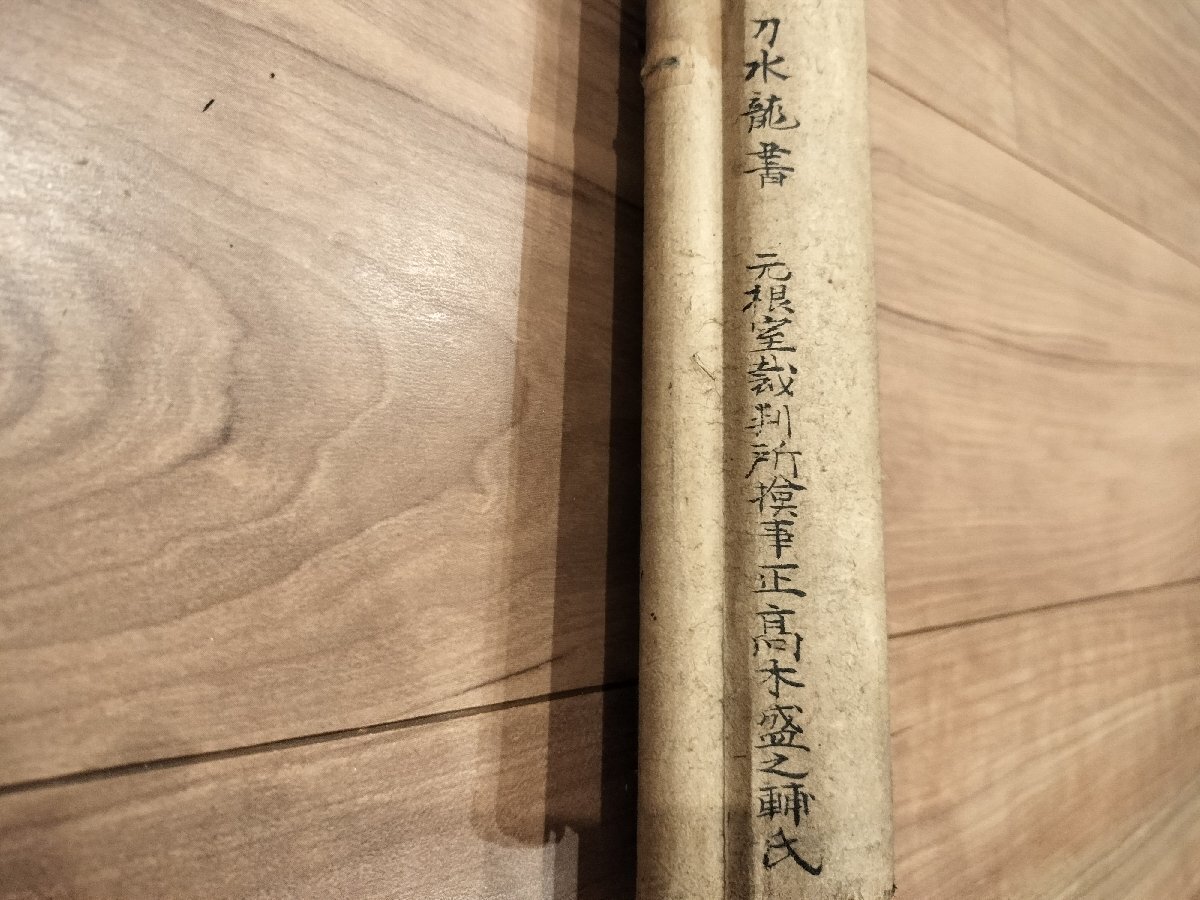 刀水龍書 元根室裁判所検事正髙木盛之輔氏